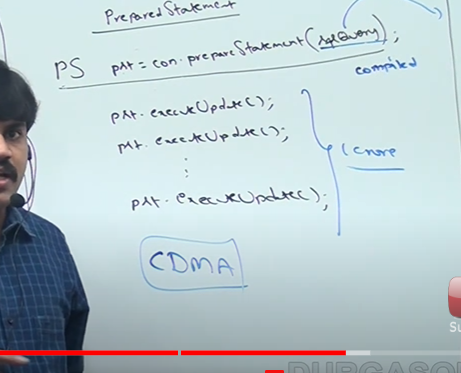 PreparedStatement
PS pst = con.prepareStatement(sqlQuery);
compiled
pst.executeUpdate();
pst.executeUpdate();
:
pst.executeUpdate();
1 crore
CDMA
Su
DURGASO